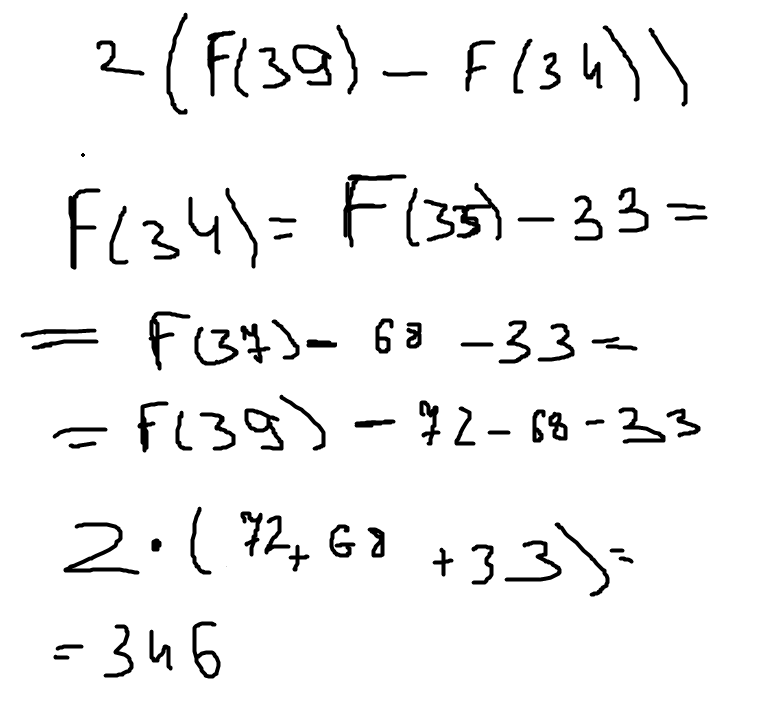 2(F(39) - F(34))
F(34) = F(35) - 33 =
= F(37) - 68 - 33 =
= F(39) - 72 - 68 - 33
2 · (72 + 68 + 33) =
= 346